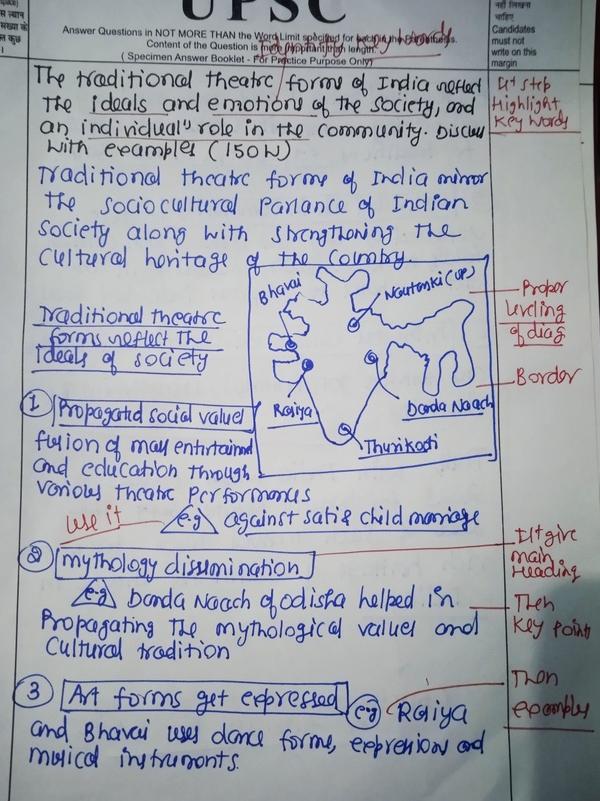 UPSC
Answer Questions in NOT MORE THAN the Word Limit specified for each in the
Content of the Question is more important than length.
( Specimen Answer Booklet - For Practice Purpose Only)
Key words
नहीं लिखना
चाहिए
Candidates
must not
write on this
margin
The traditional theatre forms of India reflect
the ideals and emotions of the society, and
an individual's role in the community. Discuss
with examples (150W)
1st step
Highlight
Key words
Traditional theatre forms of India mirror
the sociocultural parlance of Indian
society along with strengthening the
cultural heritage of the country.
Bhavai
Nautanki (UP)
Proper
of diag
Border
Traditional theatre
forms reflect the
ideals of society
Danda Naach
① Propagated social values
fusion of
and education through
various theatre performances
use it
e.g against sati & child marriage
② mythology dissimination
1st give
main
Heading
e.g Danda Naach of Odisha helped in
Propagating the mythological values and
Cultural tradition
Then
Key points
③ Art forms get expressed e.g Rasiya
and Bhavai uses dance forms, expression and
musical instruments.
Then
examples